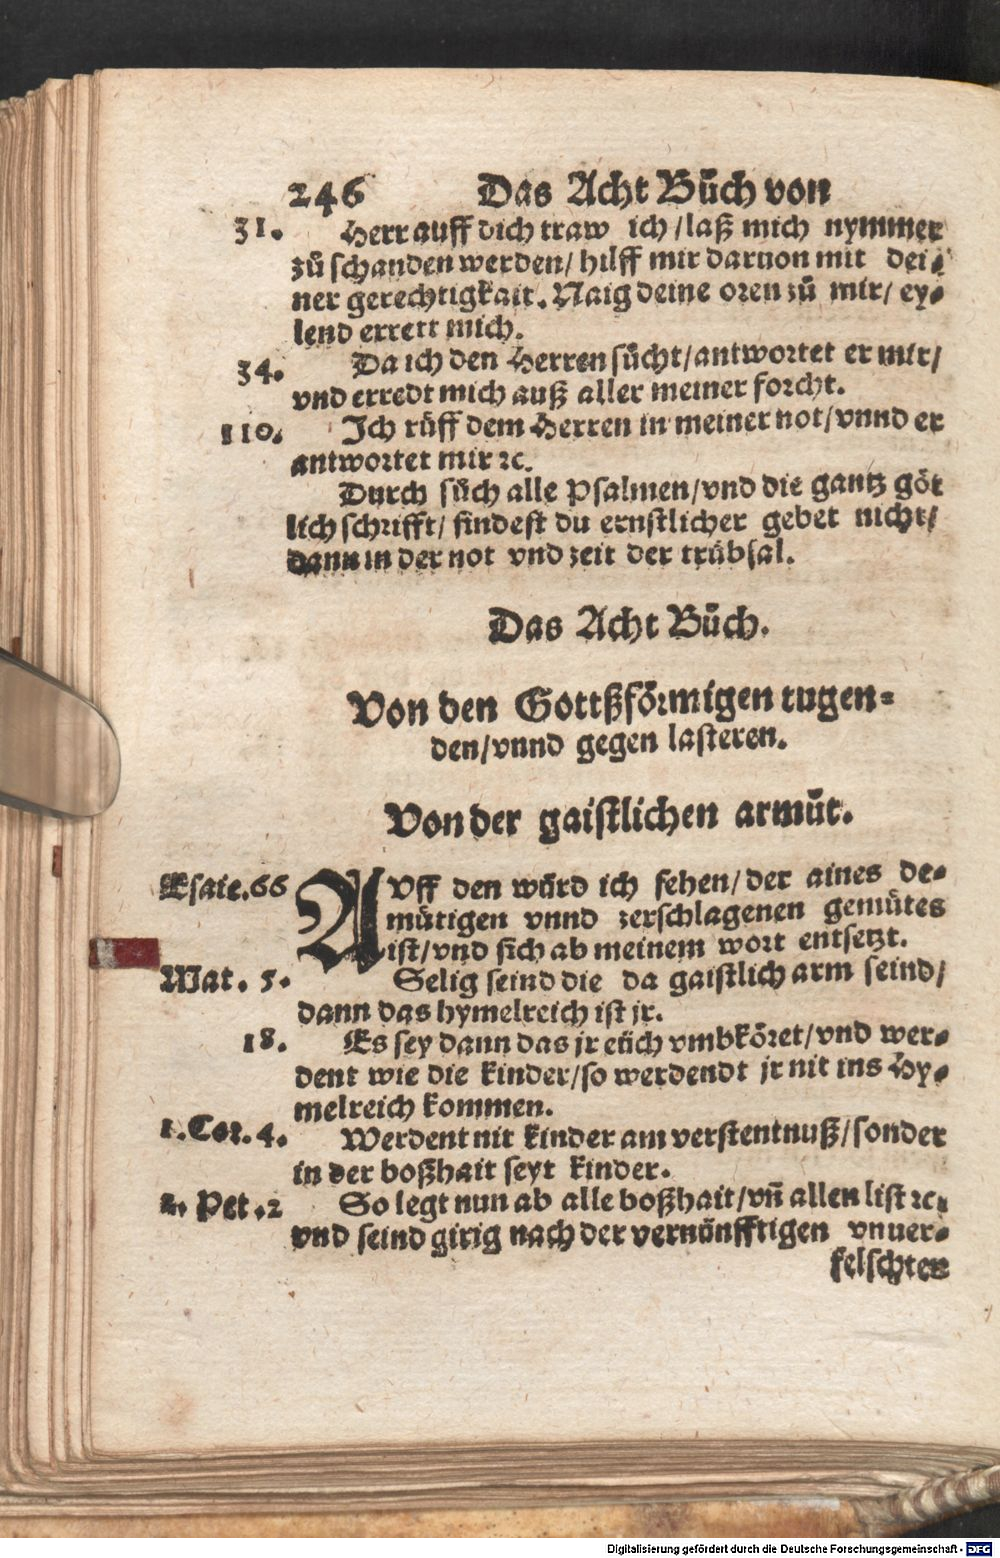 246 Das Acht Bůch von
31. Herr auff dich traw ich / laß mich nymmer
zů schanden werden / hilff mir daruon mit dei⸗
ner gerechtigkait. Naig deine oren zů mir / ey⸗
lend errett mich.
34. Da ich den Herren sůcht / antwortet er mir /
vnd erredt mich auß aller meiner forcht.
110. Ich růff dem Herren in meiner not / vnnd er
antwortet mir ꝛc.
Durch sůch alle Psalmen / vnd die gantz göt
lich schrifft / findest du ernstlicher gebet nicht /
dann in der not vnd zeit der trübsal.
Das Acht Bůch.
Von den Gottßförmigen tugen⸗
den / vnnd gegen lasteren.
Von der gaistlichen armůt.
Esaie. 66 AVff den würd ich sehen / der aines de⸗
mütigen vnnd zerschlagenen gemütes
ist / vnd sich ab meinem wort entsetzt.
Mat. 5. Selig seind die da gaistlich arm seind /
dann das hymelreich ist jr.
18. Es sey dann das jr eüch vmbköret / vnd wer⸗
dent wie die kinder / so werdendt jr nit ins Hy⸗
melreich kommen.
1. Cor. 4. Werdent nit kinder am verstentnuß / sonder
in der boßhait seyt kinder.
Pet. 2 So legt nun ab alle boßhait / vñ allen list ꝛc.
vnd seind girig nach der vernünfftigen vnuer⸗
felschten
Digitalisierung gefördert durch die Deutsche Forschungsgemeinschaft - DFG